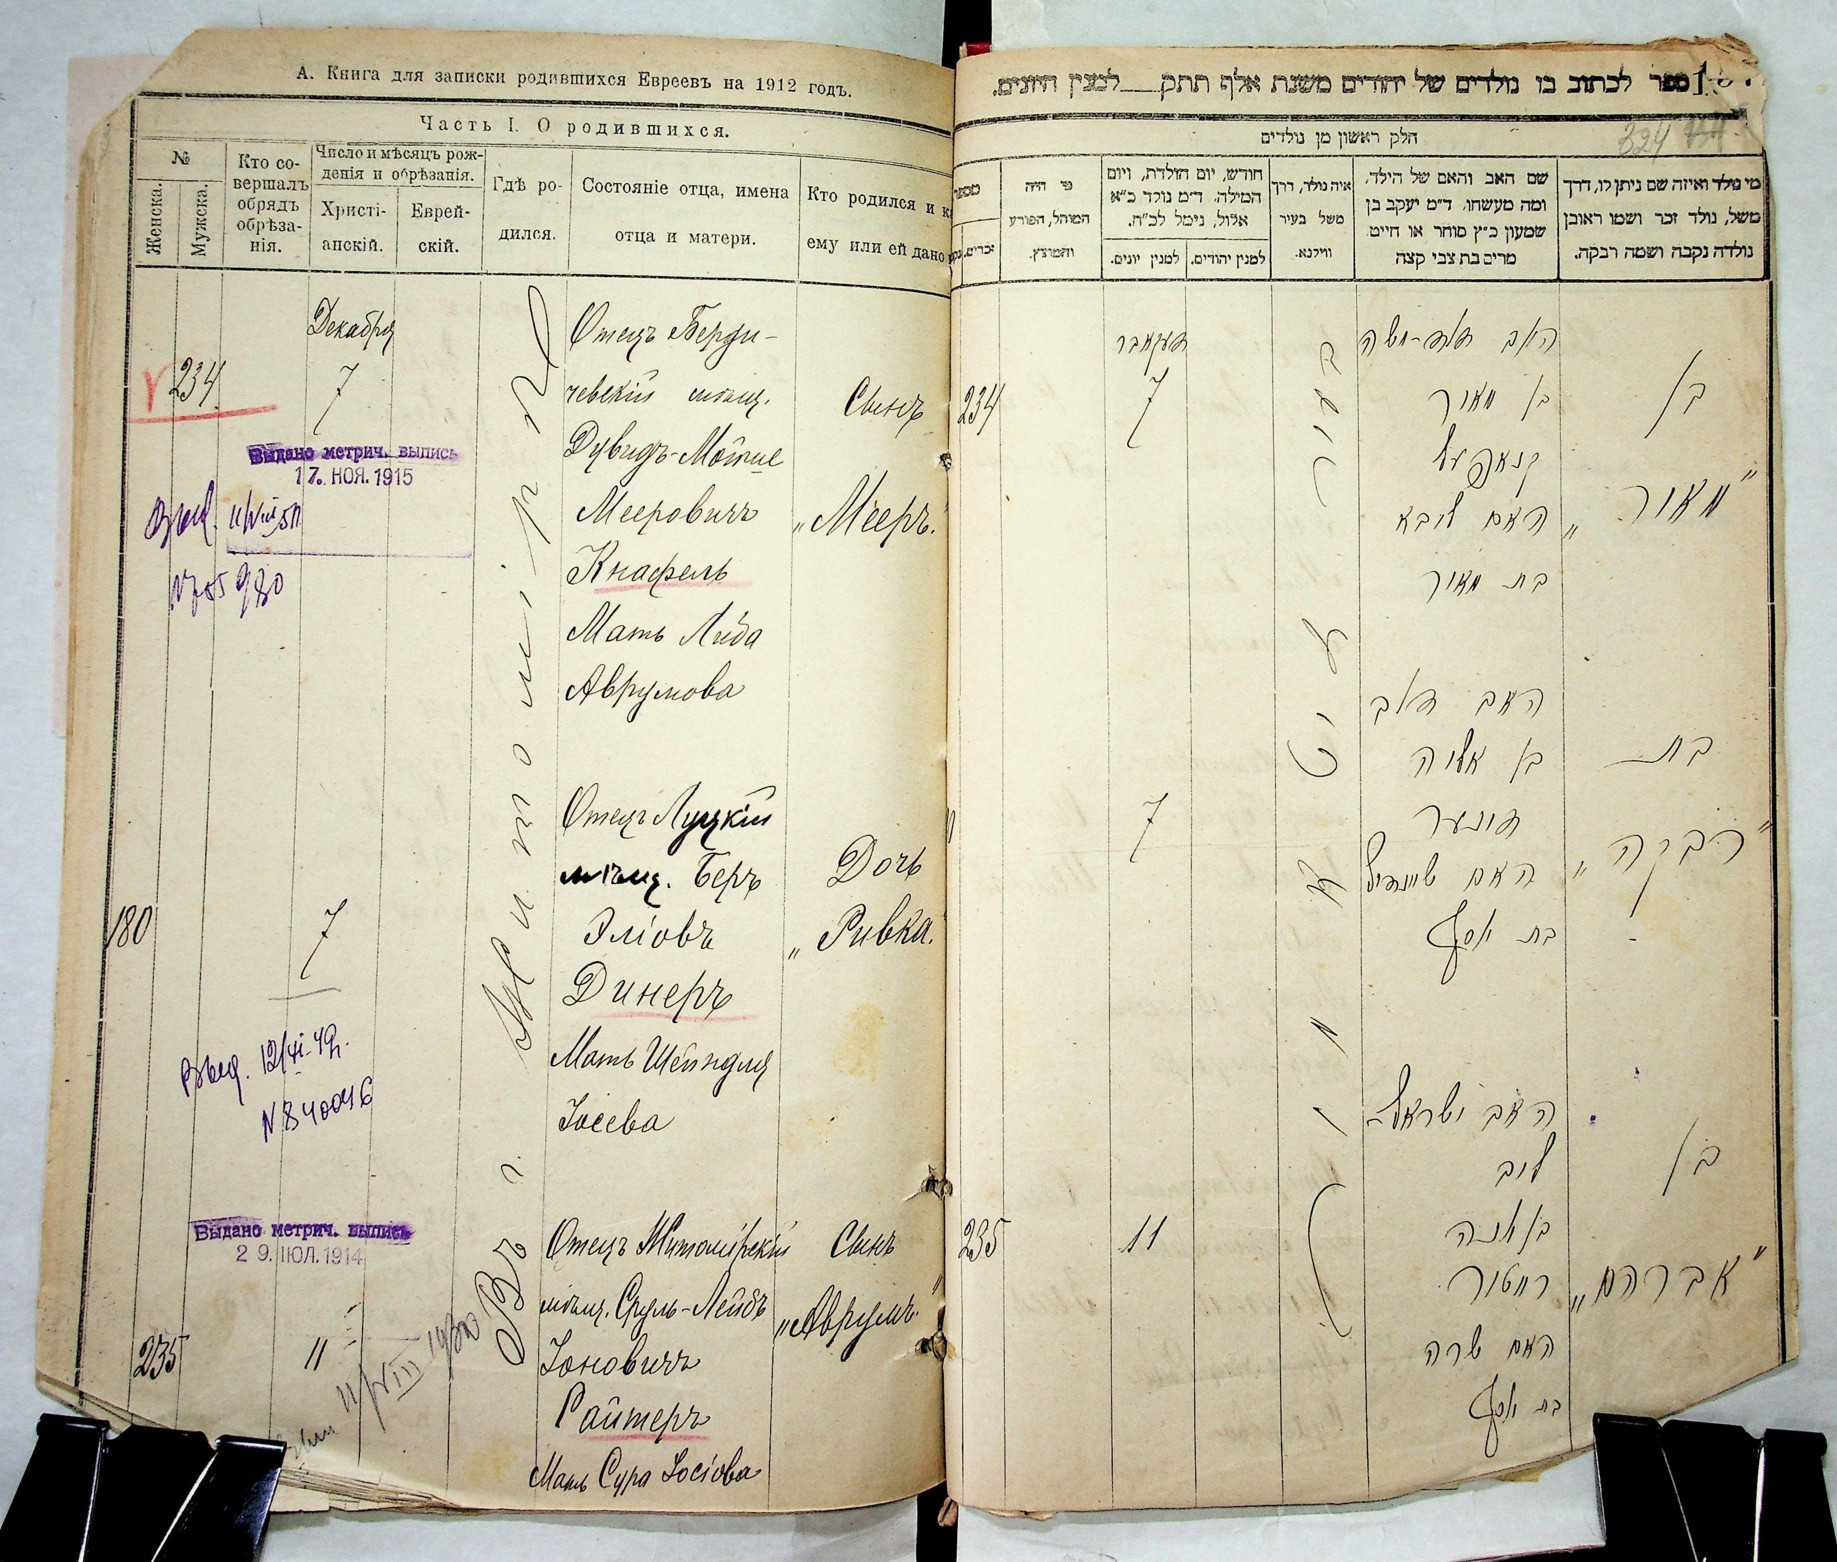 А. Книга для записки родившихся Евреевъ на 1912 годъ.
Часть I. О родившихся.
№
Женска.
Мужска.
Кто со-
вершалъ
обрядъ
обрѣза-
нія.
Число и мѣсяцъ рож-
денія и обрѣзанія.
Христі-
анскій.
Еврей-
скій.
Гдѣ ро-
дился.
Состояніе отца, имена
отца и матери.
Кто родился и
ему или ей дано
234
Декабря
7
Отецъ Берди-
чевскій мѣщ.
Дувидъ-Мойше
Мееровичъ
Кнафель
Мать Либа
Аврумова
Сынъ
„Мееръ."
Выдано метрич. выпись
17. НОЯ. 1915
Въ г. Житомірѣ
180
7
Отецъ Луцкій
мѣщ. Беръ
Эліовъ
Динеръ
Мать Шейндля
Іосева
Дочь
„Ривка."
Выд. 12/XI-49г.
Выдано метрич. выпись
29. ІЮЛ. 1914
235
11
Отецъ Житомірскій
мѣщ. Сруль-Лейбъ
Іоновичъ
Райтеръ
Мать Сура Іосіова
Сынъ
„Аврумъ"
11/VIII 1930
ספר לכתוב בו נולדים של יהודים משנת אלף תתק למנין היונים.
324
חלק ראשון מן נולדים
מספר
זכרים.
מי היה
המוהל, הפורע
והמוצץ.
חודש, יום הולדת, ויום
המילה. ד״מ נולד כ״א
אלול, נימל לכ״ח.
למנין יונים.
למנין יהודים.
איה נולד, דרך
משל בעיר
ווילנא.
שם האב והאם של הילד,
ומה מעשהו. ד״מ יעקב בן
שמעון כ״ץ סוחר או חייט
מרים בת צבי קצה
מי נולד ואיזה שם ניתן לו, דרך
משל, נולד זכר ושמו ראובן
נולדה נקבה ושמה רבקה.
234
דעקאבר
7
האב דוד-משה
בן מאיר
קנאפעל
האם ליבא
בת מאיר
בן
„מאיר"
בעיר זיטאמיר
7
האב דוב
בן אליה
דינער
האם שיינדיל
בת יוסף
בת
„רבקה"
235
11
האב ישראל-
ליב
בן יונה
רייטער
האם שרה
בת יוסף
בן
„אברהם"